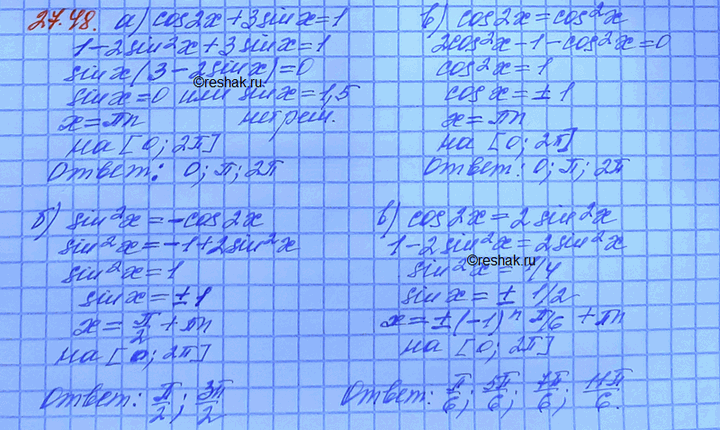 27.48. а) cos2x+3sinx=1
1-2sin²x+3sinx=1
sinx(3-2sinx)=0
©reshak.ru
sinx=0 или sinx=1,5
x=πn нет реш.
на [0; 2π]
Ответ: 0; π; 2π
в) cos2x=cos²x
2cos²x-1-cos²x=0
cos²x=1
cosx=±1
x=πn
на [0; 2π]
Ответ: 0; π; 2π
б) sin²x=-cos2x
sin²x=-1+2sin²x
sin²x=1
sinx=±1
x=π/2+πn
на [0; 2π]
Ответ: π/2; 3π/2
в) cos2x=2sin²x
1-2sin²x=2sin²x
©reshak.ru
sin²x=1/4
sinx=±1/2
x=±(-1)ⁿ π/6 +πn
на [0; 2π]
Ответ: π/6; 5π/6; 7π/6; 11π/6.